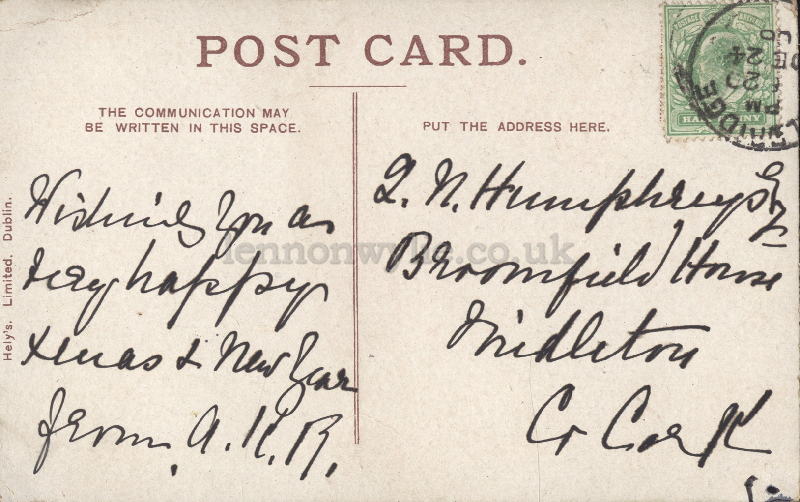 POST CARD.
THE COMMUNICATION MAY
BE WRITTEN IN THIS SPACE.
PUT THE ADDRESS HERE.
Hely's. Limited. Dublin.
Wishing you a
very happy
Xmas & New Year
from A.K.R.
N. Humphreys Esq
Broomfield House
Midleton
Co Cork
HALFPENNY
BRIDGE
PM
DE 24
lennonwylie.co.uk